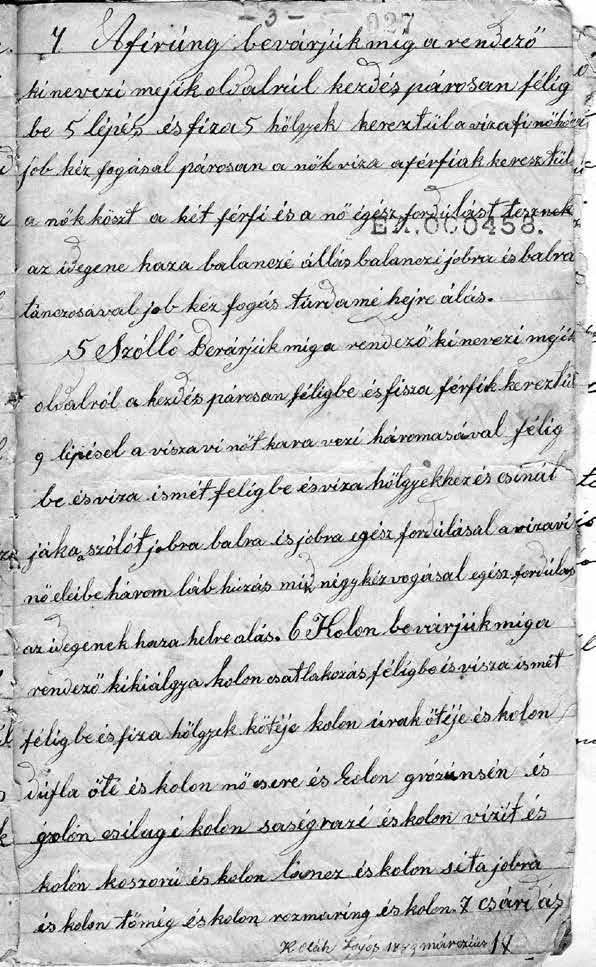 - 3 -
027
4 Afirúng bevárjúk mig a rendező
kinevezi mejik oldalrúl kezdés párosan félig
be 5 lépés és fiza 5 hölgyek kereztül a vizafi nőhöz
job kéz fogásal párosan a nők viza aférfiak keresztűl
a nők köszt a két férfi és a nő égész fordúlást tesznek
EA.000458.
az idegene haza balanczé állás balanczi jobra és balra
tánczosával job kéz fogás túrdamé hejre álás.
5 Szólló Berárjúk mig a rendező kinevezi mejik
oldalról a kezdés párosan féligbe és fisza férfik kereztűl
9 lépésel a viszavi nőt kara vezi háromasával félig
be és viza ismét feligbe és viza hölgyekhez és csinál
jáka a szólót jobra balra és jobra egész fordúlásal a vizavi
nő eleibe három láb húzás mid négykéz vogásal egész fordúlás
az idegenek haza helre alás. 6 Kolon bevárjúk mig a
rendező kikiálgya kolon csatlakozás féligbe és visza ismét
félig be és fiza hölgyek kötéje kolon úrak ötéje és kolon
dúfla öté és kolon nő csere és Golon grózúnsén és
golon csilagé kolon saségrazé és kolon vizit és
kolon koszorú és kolon láncz és kolon séta jobra
és kolon tömég és kolon rozmaring és kolon. 7 csárdás
K Oláh Lajos márczius 14